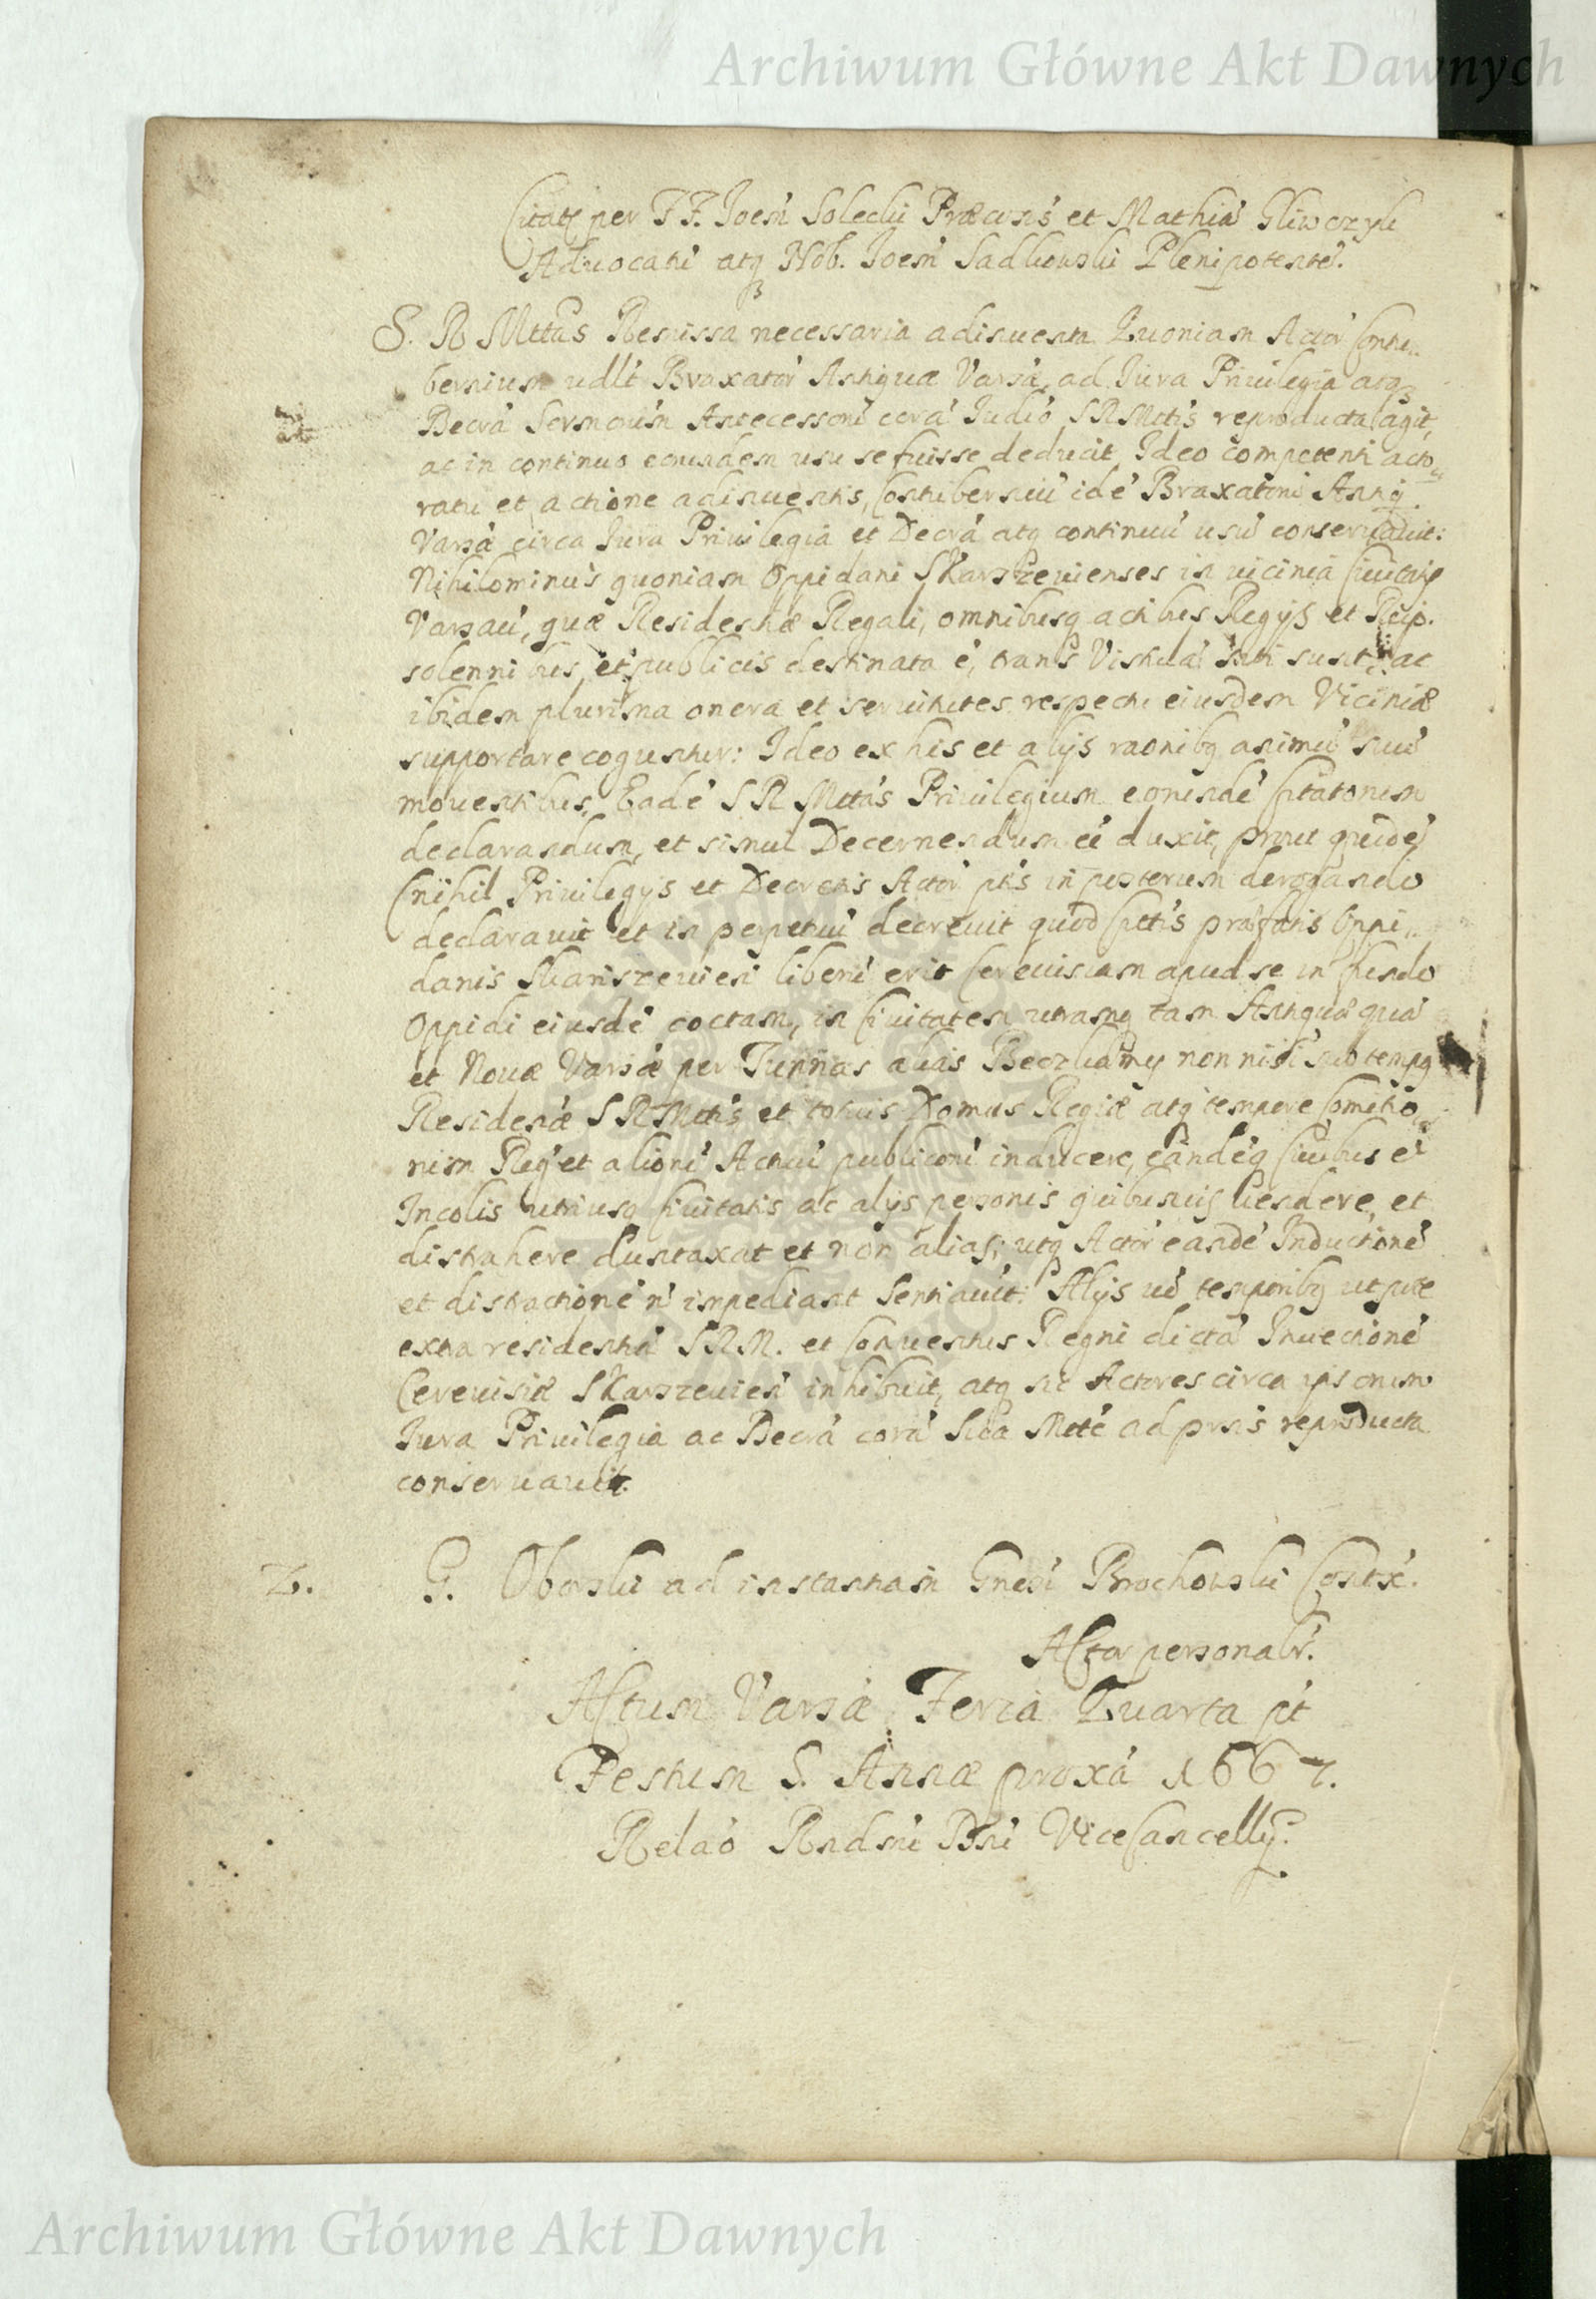 Archiwum Główne Akt Dawnych
Citatq per FF. Joem̃ Solecki Præcons̃ et Mathiã Gliwczyk
Aduocatũ atq Nob. Joem̃ Sadkowski Plenipotentẽ.
S. R Mttas Remissa necessaria adinuenta Quoniam Actor̃ Conthu„
bernium udlt Braxator̃ Antiquæ Varsã, ad Jura Priuilegia atq
Decrã Sermorum̃ Antecessorũ corã Judiõ SRMttis reproducta agit,
ac in continuo eorundem usu se fuisse deducit, Ideo competenti acto„
ratu et actione adinuentis, Contiberniũ idẽ Braxatorũ Antiq
Varsã circa Jura Priuilegia et Decrã atq continuũ usũ conseruauit:
Nihilominus quoniam Oppidani Skarszeuienses in uicinia Ciuitatq
Varsaũ, quæ Residentiæ Regali, omnibusq actibus Regijs et Reip.
solennibus, et publicis destinata ẽ, trans Vistulã siti sunt, ac
ibidem plurima onera et seruitutes respectu eiusdem Viciniæ
supportare coguntur: Ideo ex his et alijs raonibq animũ suũ
mouentibus, Eadẽ SR Mttas Priuilegium eorundẽ Citatorum
declarandum, et simul Decernendum eẽ duxit, prout quidẽ
(nihil Priuilegijs et Decretis Actor̃ ptis in posterum derogando
declarauit et in perpetuũ decreuit quod Cittis præfatis Oppi„
danis Skariszeuieñ liberũ erit Cereuisiam apud se in fundo
Oppidi eiusdẽ coctam, in Ciuitatem utramq tam Antiquæ quã
et Nouæ Varsæ per Tunnas alias Beczkamy non nisi sub tempq
Residenæ SRMttis et totius Domus Regiæ atq tempore Comitio„
rum Regñ et aliorũ Actuũ publicorũ inducere, eandẽq Ciuibus et
Incolis utriusq Ciuitatis ac alijs personis quibusuis uendere, et
distrahere duntaxat et non alias; utq Actor̃ eandẽ Inductionẽ
et distractionẽ ñ impediant Sentiauit: Alijs uõ temporibq utpote
extra residentiã SRM. et Conuentus Regni dictã Inuectionẽ
Cereuisiæ Skarszeuieñ inhibuit, atq sic Actores circa ipsorum
Jura Priuilegia ac Decrã corã Sua Mtte ad præns reproducta
conseruauit.
2. G. Oborski ad instantiam Gnesi Brochowski Contx̃.
Actor personalr̃.
Actum Varsæ Feria Quarta pt
Festum S. Annæ proxã 1667.
Relaõ Rndmi Dni ViceCancellij.
Archiwum Główne Akt Dawnych